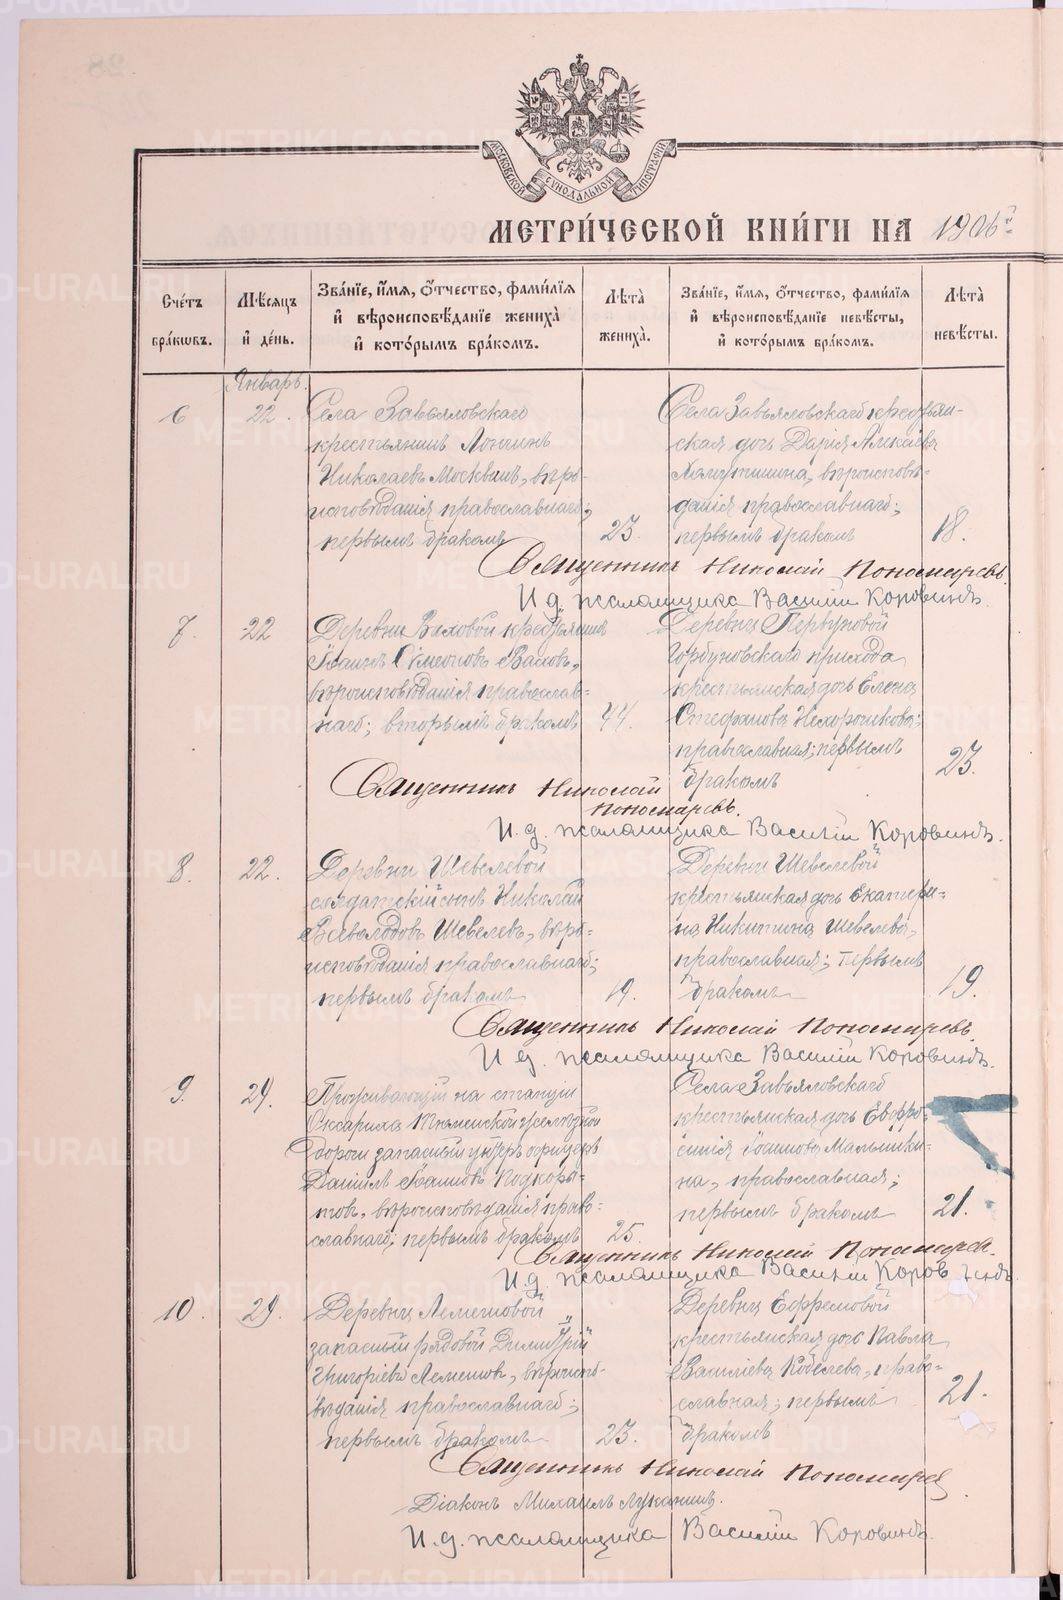 МОСКОВСКОЙ СѴНОДАЛЬНОЙ ТИПОГРАФІИ
МЕТРИ́ЧЕСКОЙ КНИ́ГИ НА 1906й
Сче́тъ бра́кѡвъ.
Мѣ́сѧцъ и҆ де́нь.
Зва́нїе, и҆́мѧ, ѻ҆́тчество, фами́лїѧ и҆ вѣроисповѣ́данїе жениха̀ и҆ кото́рымъ бра́комъ.
Лѣ́та жениха̀.
Зва́нїе, и҆́мѧ, ѻ҆́тчество, фами́лїѧ и҆ вѣроисповѣ́данїе невѣ́сты, и҆ кото́рымъ бра́комъ.
Лѣ́та невѣ́сты.
Январь.
6
22.
Села Завьяловскаго
крестьянинъ Логгинъ
Николаевъ Москвинъ, вѣро-
исповѣданія православнаго;
первымъ бракомъ
23.
Села Завьяловскаго крестьян-
ская дочь Дарія Алексѣева
вѣроисповѣ-
данія православнаго;
первымъ бракомъ
18.
Священникъ Николай Пономаревъ.
И. д. псаломщика Василій Коровинъ.
7.
22
Деревни Виховой крестьянинъ
Іоаннъ Сѵмеоновъ Виховъ,
вѣроисповѣданія православ-
наго; вторымъ бракомъ
44.
Деревни Первуновой
Горбуновскаго прихода
крестьянская дочь Елена
Стефанова Нехорошкова,
православная; первымъ
бракомъ
23.
Священникъ Николай
Пономаревъ.
И. д. псаломщика Василій Коровинъ.
8.
22.
Деревни Шевелевой
солдатскій сынъ Николай
Всеволодовъ Шевелевъ, вѣро-
исповѣданія православнаго;
первымъ бракомъ
19.
Деревни Шевелевой
крестьянская дочь Екатери-
на Никитина Шевелева,
православная; первымъ
бракомъ
19.
Священникъ Николай Пономаревъ.
И. д. псаломщика Василій Коровинъ.
9.
29.
Проживающій на станціи
Оксариха Тюменской желѣзной
дороги запасный унтеръ офицеръ
Даніилъ Іоанновъ Подкоры-
товъ, вѣроисповѣданія право-
славнаго; первымъ бракомъ
25.
Села Завьяловскаго
крестьянская дочь Евфро-
синія Іоаннова Малышки-
на, православная;
первымъ бракомъ
21.
Священникъ Николай Пономаревъ.
И. д. псаломщика Василій Коровинъ.
10.
29.
Деревни Лемешовой
запасный рядовой Димитрій
Григоріевъ Лемешовъ, вѣроиспо-
вѣданія православнаго;
первымъ бракомъ
23.
Деревни Ефремовой
крестьянская дочь Павла
Василіева Кобелева, право-
славная; первымъ
бракомъ
21.
Священникъ Николай Пономаревъ
Діаконъ Михаилъ Луканинъ.
И. д. псаломщика Василій Коровинъ.
METRIKI.GASO-URAL.RU